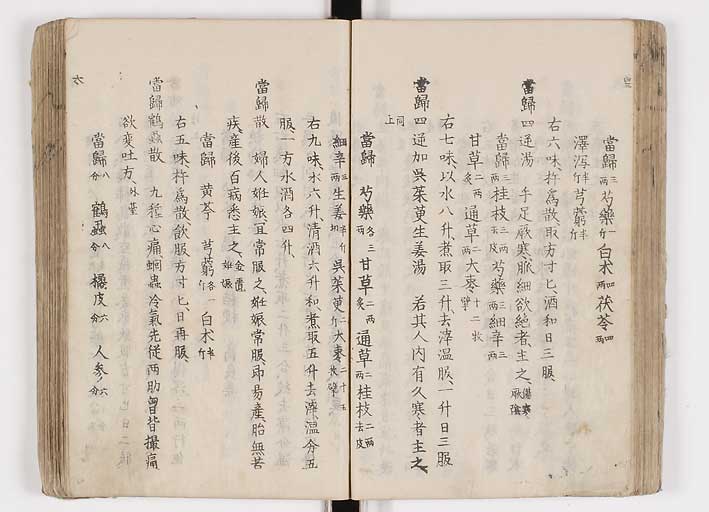 當歸三兩芍藥一斤白术四兩茯苓四兩
澤瀉半斤芎藭半斤
右六味杵爲散取方寸匕酒和日三服
當歸四逆湯 手足厥寒脈細欲絶者主之傷寒厥陰
當歸三兩桂枝三兩去皮芍藥三兩細辛三兩
甘草二兩炙通草二兩大棗十二枚擘
右七味以水八升煮取三升去滓温服一升日三服
當歸四逆加吳茱萸生姜湯 若其人内有久寒者主之
同上
當歸 芍藥各三兩甘草二兩炙通草二兩桂枝二兩去皮
細辛三兩生姜半斤切吳茱萸二斤大棗二十五枚擘
右九味水六升清酒六升和煮取五升去滓温分五
服一方水酒各四升
當歸散 婦人姙娠宜常服之姙娠常服即易産胎無苦
疾産後百病悉主之金匱姙娠
當歸 黄芩 芎藭各一斤白术半斤
右五味杵爲散飲服方寸匕日再服
當歸鶴蝨散 九種心痛蛔蟲冷氣先從兩肋胷背撮痛
欲變吐方外臺
當歸八分鶴蝨八分橘皮六分人參六分
六